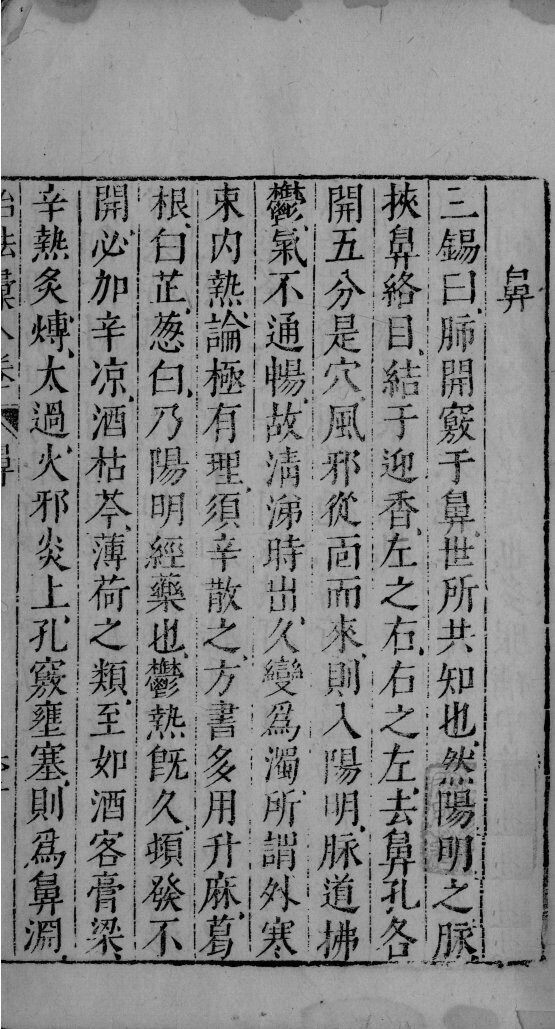 鼻
三錫曰肺開竅于鼻世所共知也然陽明之脉
挾鼻絡目結于迎香左之右右之左去鼻孔各
開五分是穴風邪從面而來則入陽明脉道拂
鬱氣不通暢故清涕時出久變爲濁所謂外寒
束内熱論極有理須辛散之方書多用升麻葛
根白芷葱白乃陽明經藥也鬱熱旣久頓發不
開必加辛凉酒枯芩薄荷之類至如酒客膏梁
辛熱炙煿太過火邪炎上孔竅壅塞則爲鼻淵
治法彙八卷 鼻